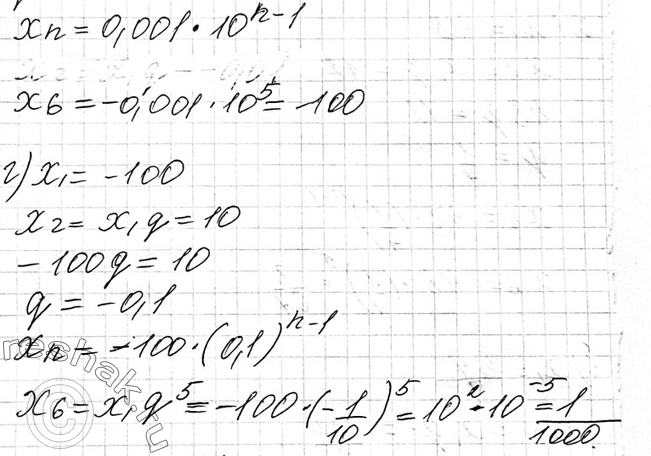 xn = 0,001 · 10^(n-1)
x6 = -0,001 · 10^5 = -100
г) x₁ = -100
x2 = x₁q = 10
-100q = 10
q = -0,1
xn = -100 · (0,1)^(n-1)
x6 = x₁q^5 = -100 · (-1/10)^5 = 10^2 · 10^-5 = 1/1000.
reshak.ru